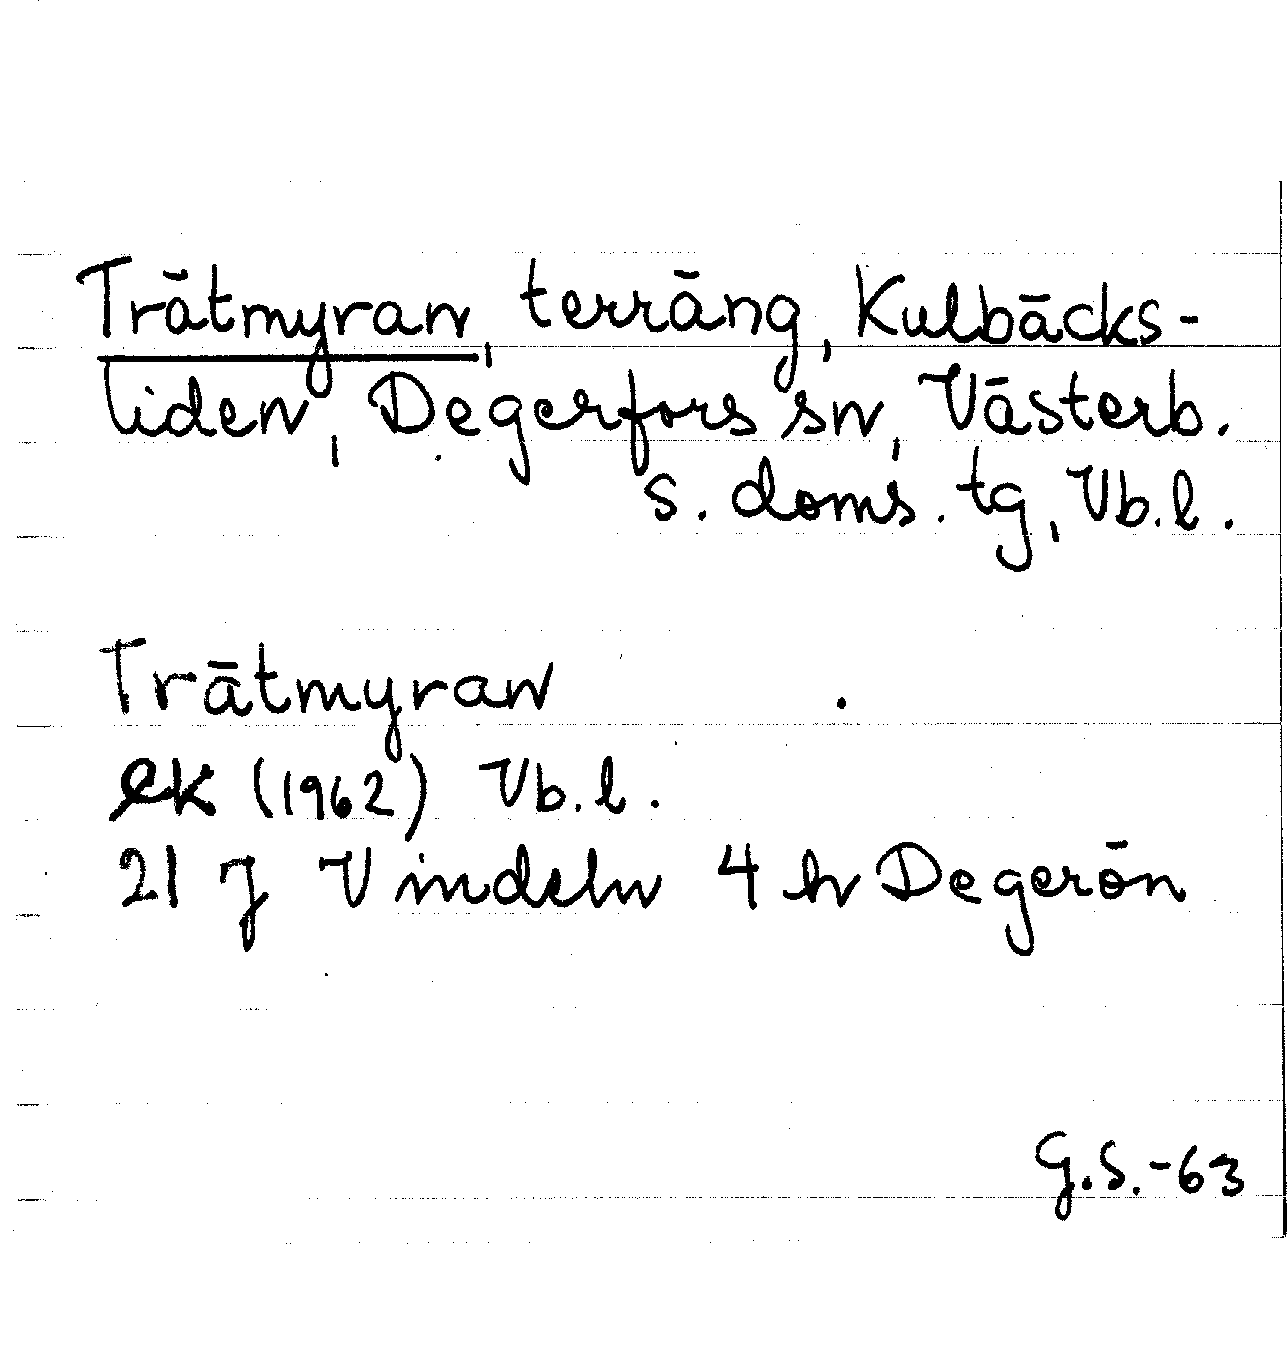 Trätmyran, terräng, Kulbäcks-
liden, Degerfors sn, Västerb.
s. doms. tg, Vb. l.
Trätmyran
ek (1962) Vb. l.
21 J Vindeln 4 h Degerön
G.S.-63